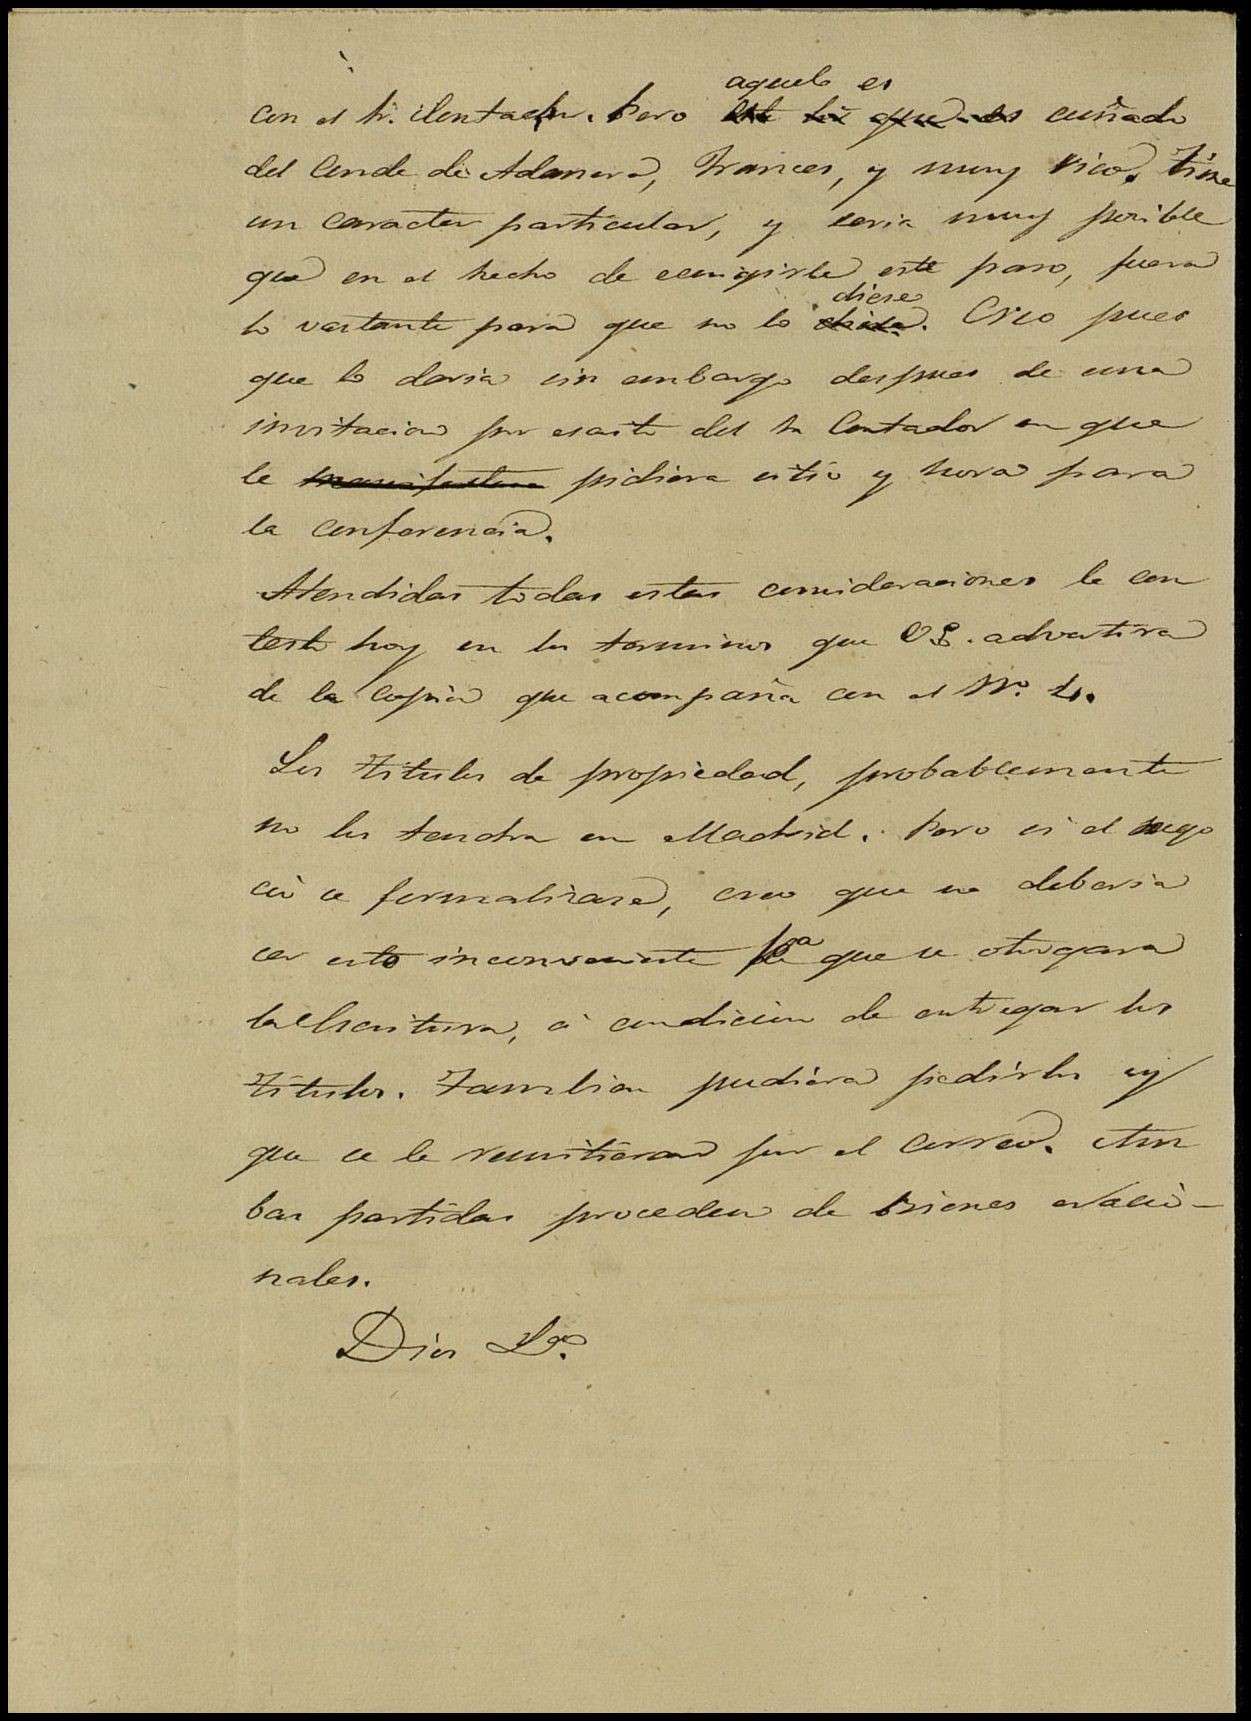 aquel es
con el Sr. Contador. Pero este Sr que es cuñado
del Conde de Adanero, Frances, y muy rico. Tiene
un caracter particular, y seria muy posible
que en el hecho de ecsigirle este paso, fuera
diese
lo vastante para que no lo diese. Creo pues
que lo daria sin embargo despues de una
invitacion por escrito del Sr Contador en que
le manifestara pidiera sitio y hora para
la conferencia.
Atendidas todas estas consideraciones le con
testo hoy en los terminos que V.S. advertira
de la copia que acompaña con el Nº. 4.
Los titulos de propiedad, probablemente
no los tendra en Madrid. Pero si el nego
cio se formalizase, creo que no deberia
ser esto inconveniente pª que se otorgara
la Escritura, á condicion de entregar los
titulos. Tambien pudiera pedirlos y
que se le remitieran por el correo. Am
bas partidas proceden de Bienes Nacio-
nales.
Dios Gº.